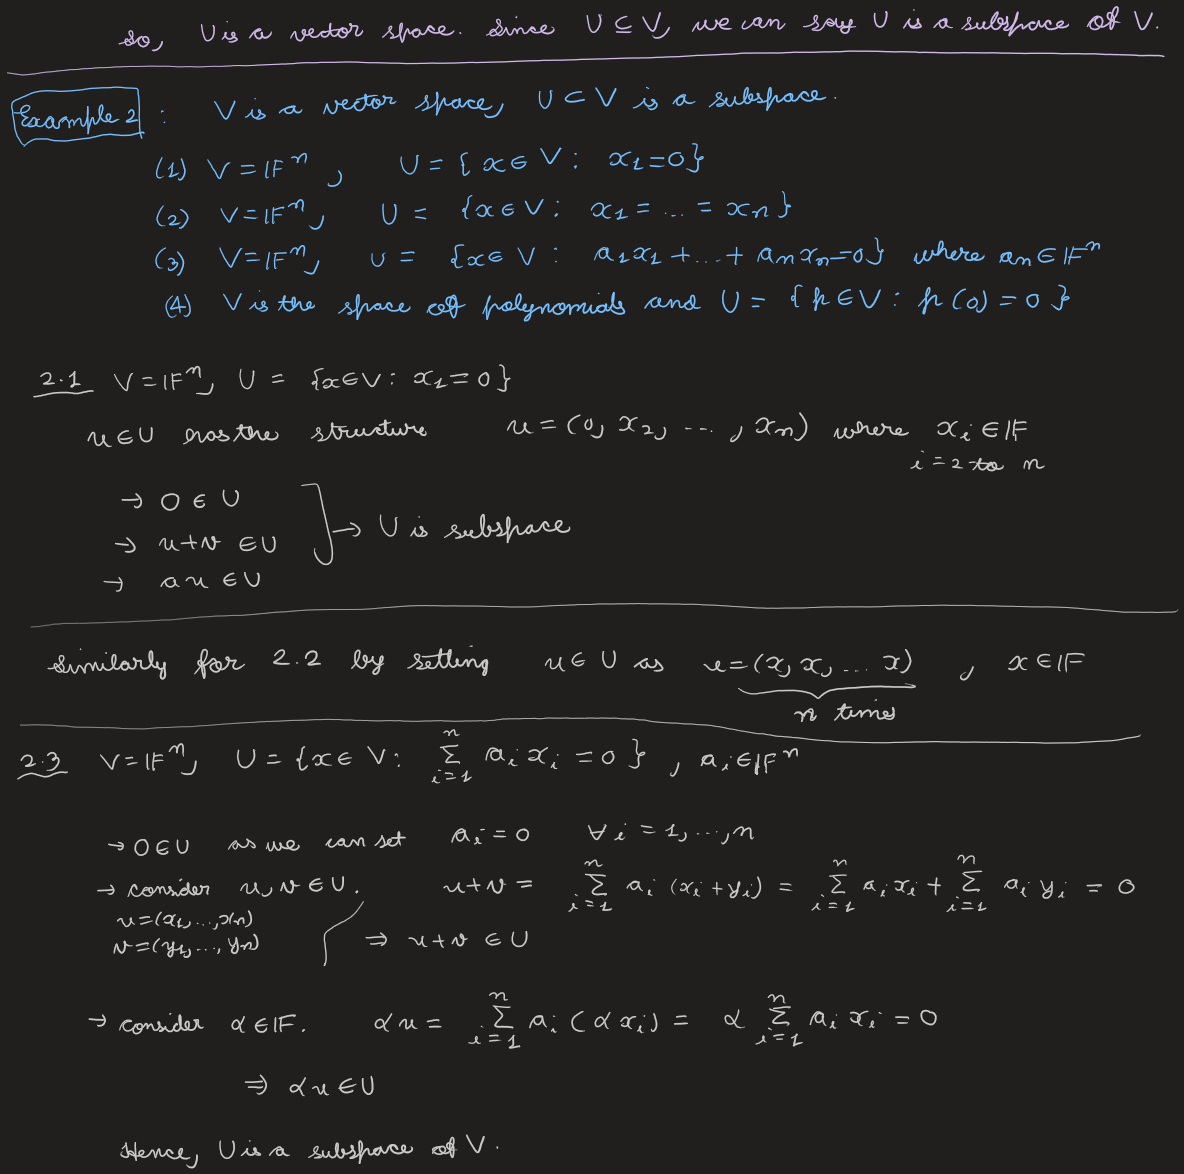 so, U is a vector space. Since U ⊆ V, we can say U is a subspace of V.
Example 2 : V is a vector space, U ⊂ V is a subspace.
(1) V = 𝔽ⁿ, U = { x ∈ V : x₁ = 0 }
(2) V = 𝔽ⁿ, U = { x ∈ V : x₁ = ... = xₙ }
(3) V = 𝔽ⁿ, U = { x ∈ V : a₁x₁ + ... + aₙxₙ = 0 } where aₙ ∈ 𝔽ⁿ
(4) V is the space of polynomials and U = { p ∈ V : p(0) = 0 }
2.1 V = 𝔽ⁿ, U = { x ∈ V : x₁ = 0 }
u ∈ U has the structure u = (0, x₂, ... , xₙ) where xᵢ ∈ 𝔽
i = 2 to n
→ 0 ∈ U
→ u + v ∈ U → U is subspace
→ au ∈ U
Similarly for 2.2 by setting u ∈ U as u = (x, x, ... x) , x ∈ 𝔽
n times
2.3 V = 𝔽ⁿ, U = { x ∈ V : ∑ᵢ₌₁ⁿ aᵢxᵢ = 0 } , aᵢ ∈ 𝔽ⁿ
→ 0 ∈ U as we can set aᵢ = 0 ∀ i = 1, ..., n
→ consider u, v ∈ U. u + v = ∑ᵢ₌₁ⁿ aᵢ (xᵢ + yᵢ) = ∑ᵢ₌₁ⁿ aᵢxᵢ + ∑ᵢ₌₁ⁿ aᵢyᵢ = 0
u = (x₁, ..., xₙ)
v = (y₁, ..., yₙ) ⇒ u + v ∈ U
→ consider α ∈ 𝔽. αu = ∑ᵢ₌₁ⁿ aᵢ (αxᵢ) = α ∑ᵢ₌₁ⁿ aᵢxᵢ = 0
⇒ αu ∈ U
Hence, U is a subspace of V.